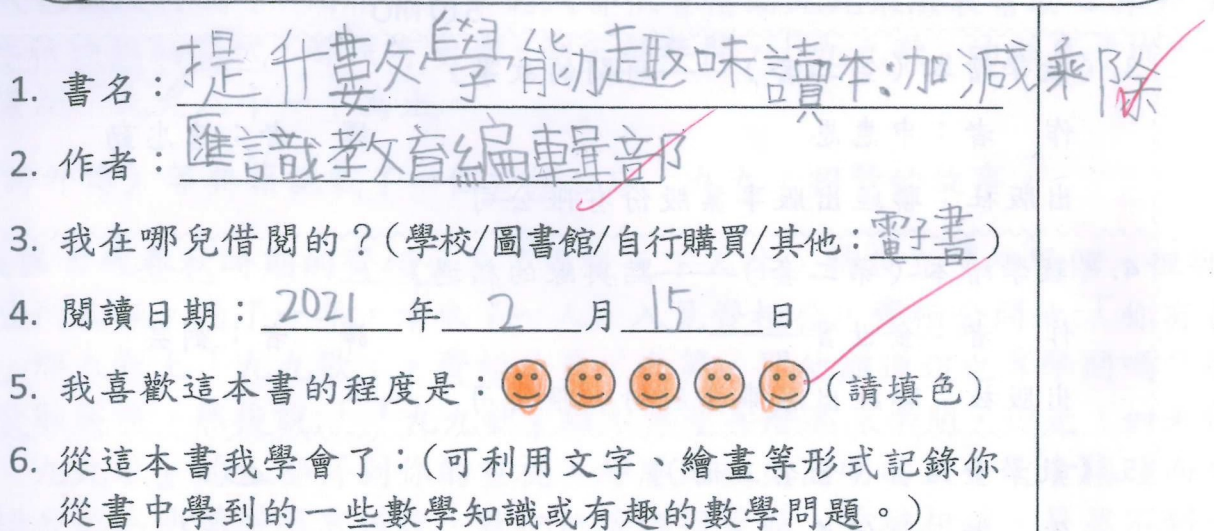 1. 書名：提升數學能力趣味讀本：加減乘除
2. 作者：匯識教育編輯部
3. 我在哪兒借閱的？(學校/圖書館/自行購買/其他：電子書)
4. 閱讀日期：2021年2月15日
5. 我喜歡這本書的程度是：(請填色)
6. 從這本書我學會了：(可利用文字、繪畫等形式記錄你
從書中學到的一些數學知識或有趣的數學問題。)